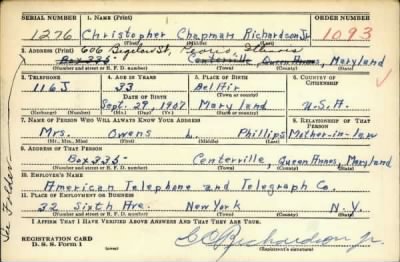 SERIAL NUMBER 1. NAME (Print) ORDER NUMBER
1276 Christopher Chapman Richardson Jr 1093
(First) (Middle) (Last)
606 Bigelow St, Peoria, Illinois
2. ADDRESS (Print)
Box 335 Centerville, Queen Annes, Maryland
(Number and street or R. F. D. number) (Town) (County) (State)
3. TELEPHONE 4. AGE IN YEARS 5. PLACE OF BIRTH 6. COUNTRY OF CITIZENSHIP
116J 33 Bel Air
DATE OF BIRTH
Sept. 29, 1907 Maryland U.S.A.
(Exchange) (Number) (Mo.) (Day) (Yr.) (State or country)
7. NAME OF PERSON WHO WILL ALWAYS KNOW YOUR ADDRESS 8. RELATIONSHIP OF THAT PERSON
Mrs. Owens L. Phillips Mother-in-law
(Mr., Mrs., Miss) (First) (Middle) (Last)
9. ADDRESS OF THAT PERSON
Box 335 Centerville, Queen Annes, Maryland
(Number and street or R. F. D. number) (Town) (County) (State)
10. EMPLOYER'S NAME
American Telephone and Telegraph Co.
11. PLACE OF EMPLOYMENT OR BUSINESS
32 Sixth Ave. New York N.Y.
(Number and street or R. F. D. number) (Town) (County) (State)
I AFFIRM THAT I HAVE VERIFIED ABOVE ANSWERS AND THAT THEY ARE TRUE.
REGISTRATION CARD
D. S. S. FORM 1
C C Richardson Jr.
(Registrant's signature)
See Folder